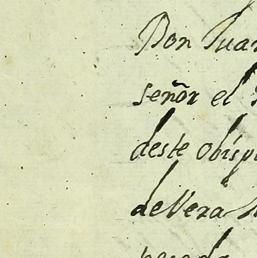 Don Juan
señor el
deste obisp
de Vera